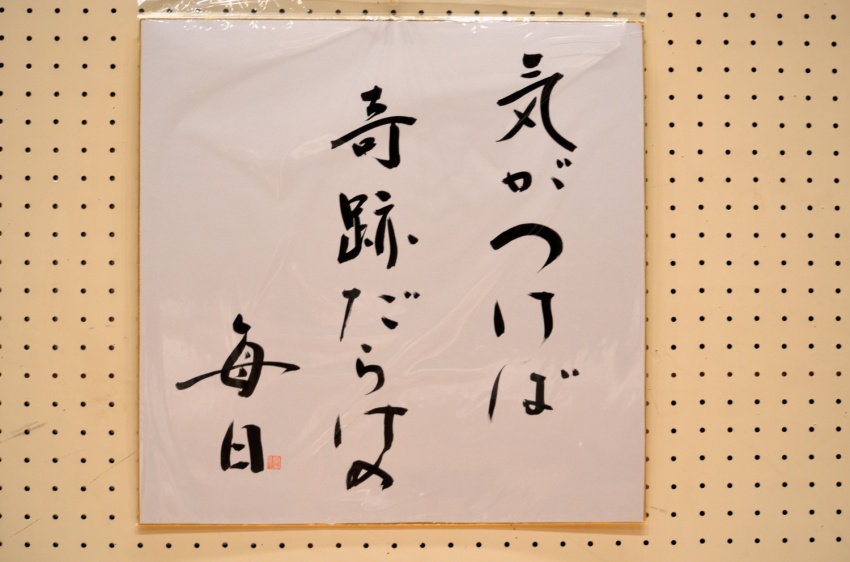 気がつけば
奇跡だらけの
毎日